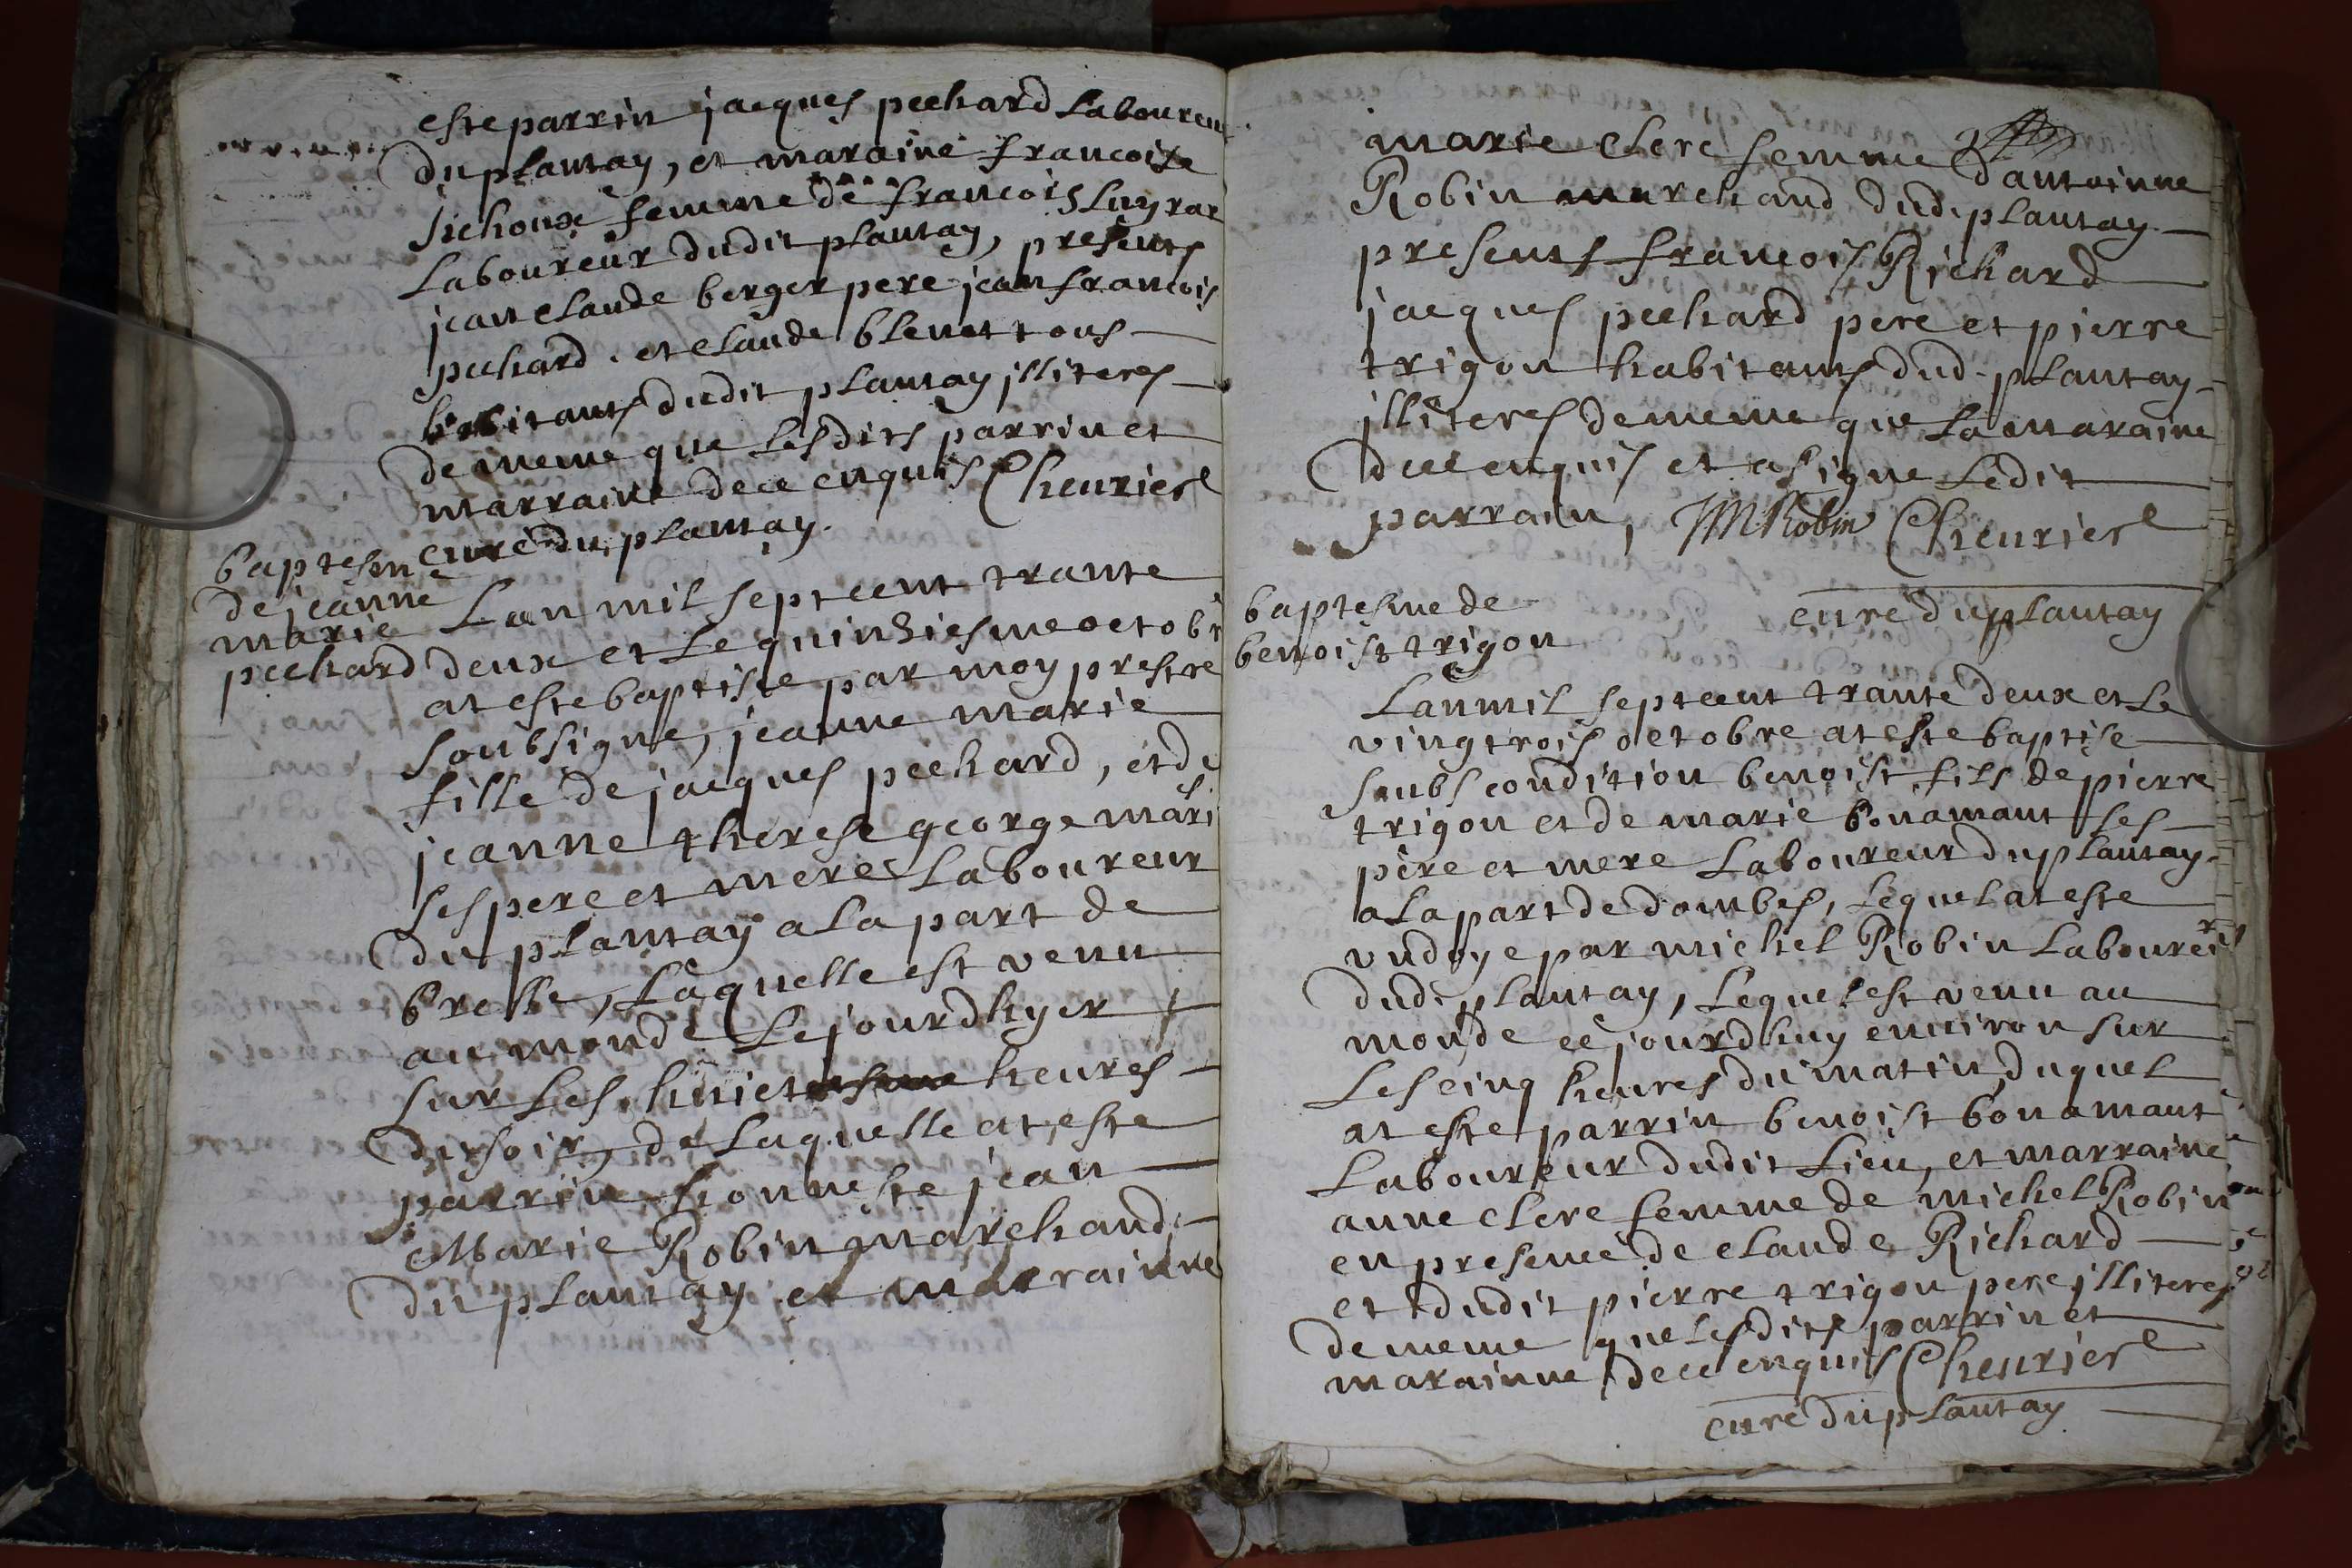 este parrin jacques pechard Laboureur
du plantay, et maraine francoise
sichoux femme de francois Luyrar
Laboureur dudit plantay, presents
jean claude berger pere jean francois
pechard et claude blenet tous
habitants dudit plantay jlliteres
de meme que lesdits parrin et
marraine de ce enquis Cheurier
curé du plantay.
baptesme
de jeanne
marie
pechard
Lan mil sept cent trante
deux et Le quinziesme octobr
at este baptisée par moy prestre
soubsigné, jeanne marie
fille de jacques pechard, et de
jeanne therese george mari
ses pere et mere Laboureur
du plantay a la part de
bresse, Laquelle est venu
au monde Le jourdhyer
sur Les huict heures
du soir, de Laquelle at este
parrin honneste jean
Marie Robin marchand
du plantay et marrainne
marie clere femme dantoinne
Robin marchand dud. plantay
presents francois Richard
jacques pechard pere et pierre
trigon habitants dud. plantay
jlliteres de meme que La maraine
de ce enquis et a signé Ledit
parrain, JM Robin Cheurier
curé du plantay
baptesme de
benoist trigon
Lan mil sept cent trante deux et Le
vingtrois octobre at este baptisé
soubs condition benoist fils de pierre
trigon et de marie bonamant ses
pere et mere Laboureur du plantay
a la part de dombes, Lequel at este
undoye par michel Robin Laboureur
dud. plantay, Lequel est venu au
monde ce jourdhuy environ sur
Les cinq heures du matin, duquel
at este parrin benoist bonamant
Laboureur dudit Lieu, et marraine
anne clere femme de michel Robin
en presence de claude Richard
et dudit pierre trigon pere jlliteres
de meme que lesdits parrin et
marainne de ce enquis Cheurier
curé du plantay